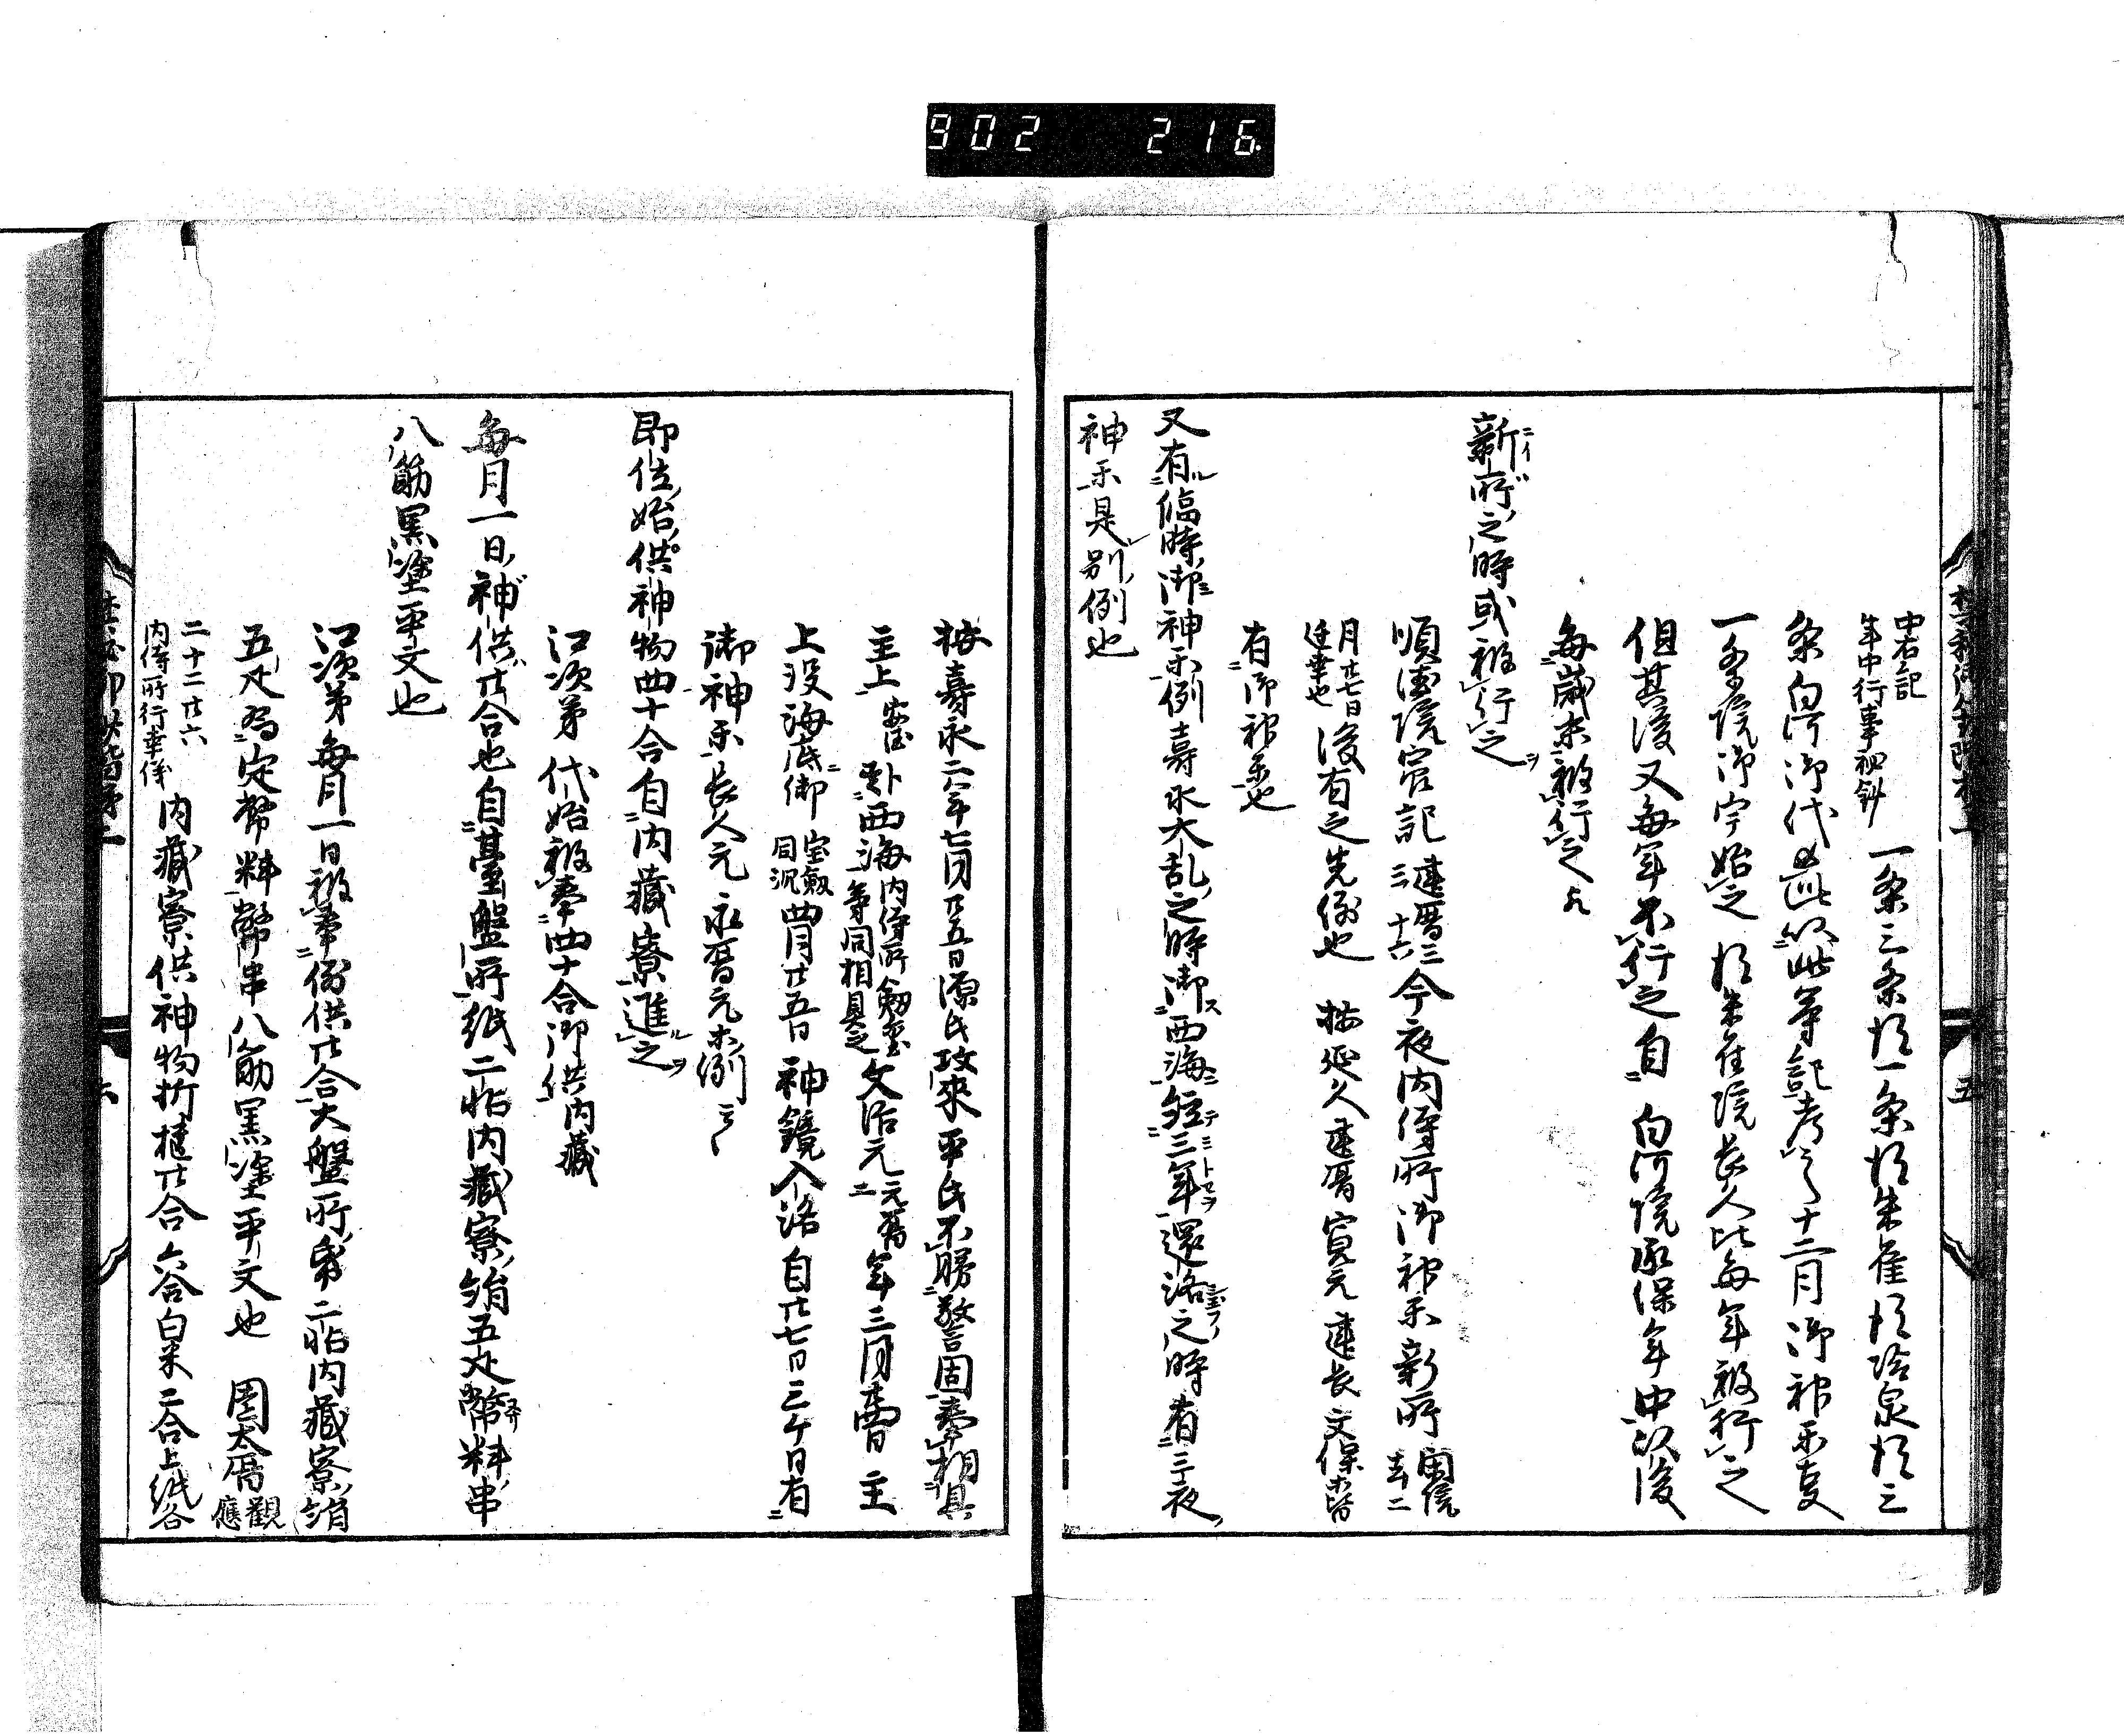 902 216
中右記
年中行事秘鈔
一条三条院一条院朱雀院冷泉院三
条白河御代以此等記考之十二月御神楽事
一条院御宇始之後朱雀院長久比毎年被行之
但其後又毎年不行之自白河院承保年中以後
毎歳末被行之
新所之時或被行之
順徳院宸記建暦三三十六今夜内侍所御神楽新所閑院去二
月廿七日遷幸也後有之先例也按延久建暦寛元建長文保等皆
有御神楽也
又有臨時御神楽例寿永大乱之時御西海経三年還洛之時有三夜
神楽是別例也
五
按寿永二年七月廿五日源氏攻来平氏不勝警固奉相具
主上安徳赴西海内侍所剱璽等同相具之文治元元暦二年三月廿四日主
上没海底御宝剱同沉四月廿五日神鏡入洛自廿七日三ケ日有
御神楽長久元永暦元等例云々
即位始供神物四十合自内蔵寮進之
江次第代始被奉四十合御供内蔵
毎月一日神供廿合也自臺盤所紙二帖内蔵寮絹五疋幣料串
八筋黒塗平文也
江次第毎月一日被奉例供廿合大盤所帋二帖内蔵寮絹
五疋為定幣料幣串八筋黒塗平文也園太暦観應
二十二廿六内侍所行幸儀内蔵寮供神物折櫃廿合六合白米二合上紙各
六